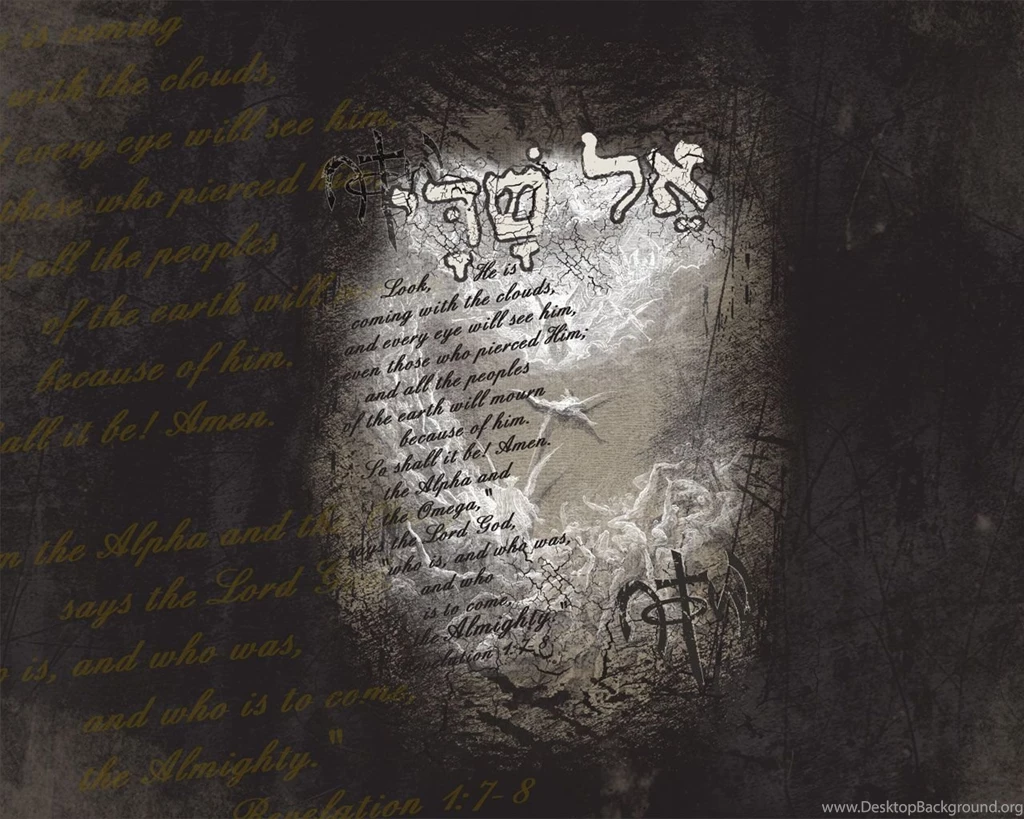 is coming
with the clouds,
every eye will see him,
those who pierced
all the peoples
of the earth will
because of him.
shall it be! Amen.
the Alpha and the
says the Lord
is, and who was,
and who is to come,
the Almighty."
Revelation 1:7-8
אֵל שַׁדַּי
Look, He is
coming with the clouds,
and every eye will see him,
even those who pierced Him;
and all the peoples
of the earth will mourn
because of him.
So shall it be! Amen.
the Alpha and
the Omega,"
says the Lord God,
"who is, and who was,
and who
is to come,
the Almighty."
Revelation 1:7-8
www.DesktopBackground.org